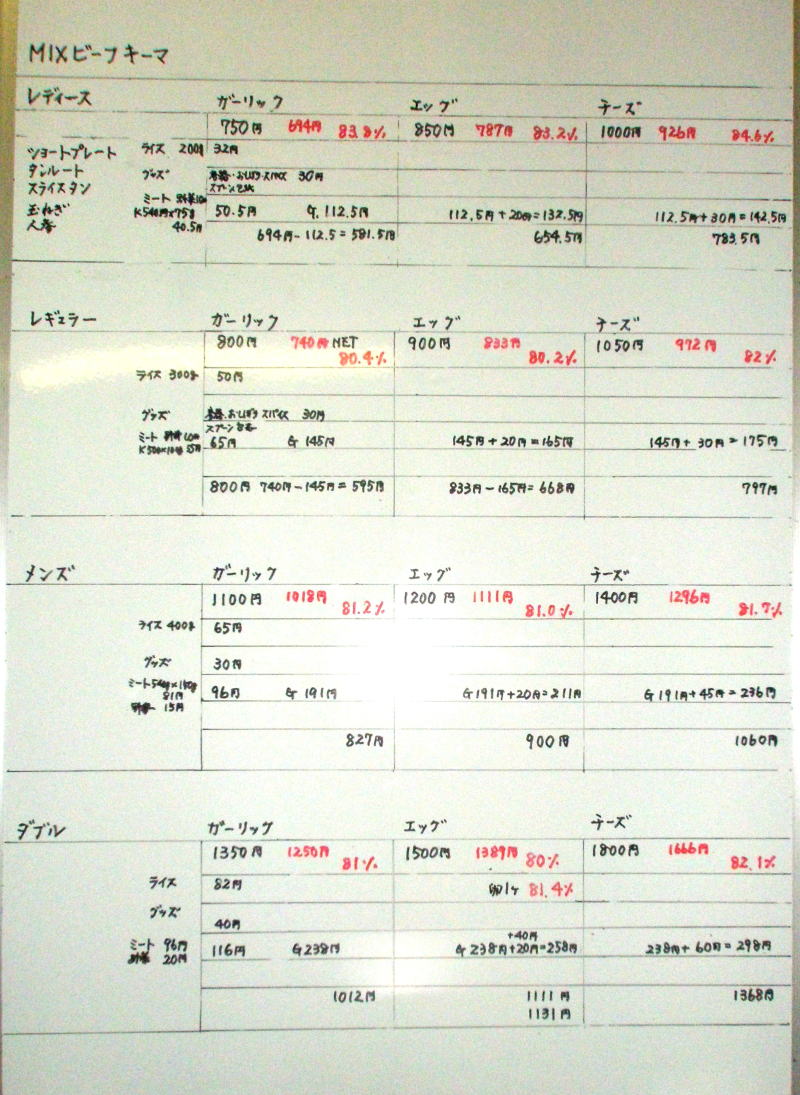 MIXビーフキーマ
レディース ガーリック エッグ チーズ
750円 694円 83.8% 850円 787円 83.2% 1000円 926円 84.6%
ショートプレート ライス 200g 32円
タンルート グッズ おしぼり スパイス 30円
スライスタン
ミート
玉ねぎ K540円×75g 50.5円 G. 112.5円 112.5円+20円=132.5円 112.5円+30円=142.5円
人参 40.5円 694円-112.5=581.5円 654.5円 783.5円
レギュラー ガーリック エッグ チーズ
800円 740円 NET 900円 833円 1050円 972円
80.4% 80.2% 82%
ライス 300g 50円
グッズ おしぼり スパイス 30円
スプーン
ミート 65円 G 145円 145円+20円=165円 145円+30円=175円
800円 740円-145円=595円 833円-165円=668円 797円
メンズ ガーリック エッグ チーズ
1100円 1018円 1200円 1111円 1400円 1296円
81.2% 81.0% 81.7%
ライス 400g 65円
グッズ 30円
ミート 96円 G 191円 G191円+20円=211円 G191円+45円=236円
81円
野菜 15円
827円 900円 1060円
ダブル ガーリック エッグ チーズ
1350円 1250円 81% 1500円 1389円 80% 1800円 1666円 82.1%
ライス 82円 卵1ヶ 81.4%
グッズ
40円
+40円
ミート 96円 116円 G238円 G238円+20円=258円 238円+60円=298円
野菜 20円
1012円 1111円 1368円
1131円